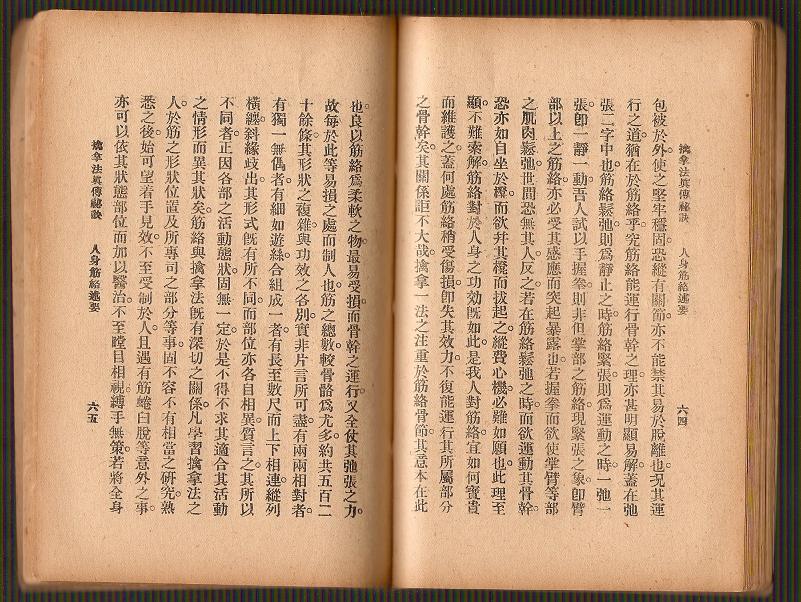 擒拿法眞傳秘訣　人身筋絡述要　六四
包被於外。使之堅牢穩固。恐縱有關節。亦不能禁其易於脫離也。況其運
行之道。猶在於筋絡乎。究筋絡能運行骨幹之理。亦甚明顯易解。蓋在弛
張二字中也。筋絡鬆弛。則爲靜止之時。筋絡緊張。則爲運動之時。一弛一
張。卽一靜一動。吾人試以手握拳。則非但掌部之筋絡。現緊張之象。卽臂
部以上之筋絡。亦必受其感應而突起暴露也。若握拳而欲使掌臂等部
之肌肉鬆弛。世間恐無其人。反之若在筋絡鬆弛之時。而欲運動其骨幹。
恐亦如自坐於櫈。而欲幷其櫈而拔起之。縱費心機。必難如願也。此理至
顯。不難索解。筋絡對於人身之功効旣如此。是我人對筋絡。宜如何寳貴
而維護之。蓋何處筋絡稍受傷損。卽失其效力。不復能運行其所屬部分
之骨幹矣。其關係詎不大哉。擒拿一法之注重於筋絡骨節。其意本在此
也。良以筋絡爲柔軟之物。最易受損。而骨幹之運行。又全仗其弛張之力。
故每於此等易損之處而制人也。筋之總數較骨骼爲尤多。約共五百二
十餘條。其形狀之複雜。與功效之各別。實非片言所可盡。有兩兩相對者。
有獨一無偶者。有細如遊絲。合組成一者。有長至數尺。而上下相連。縱列
橫纏。斜緣歧出。其形式旣有所不同。而部位亦各自相異。質言之。其所以
不同者。正因各部之活動態狀固無一定。於是不得不求其適合其活動
之情形而異其狀矣。筋絡與擒拿法。旣有深切之關係。凡學習擒拿法之
人。於筋之形狀位置及所專司之部分等事。固不容不有相當之研究。熟
悉之後。始可望着手見效。不至受制於人。且遇有筋蜷臼脫等意外之事。
亦可以依其狀態部位而加以醫治。不至瞠目相視。縛手無策。若將全身
擒拿法眞傳秘訣　人身筋絡述要　六五